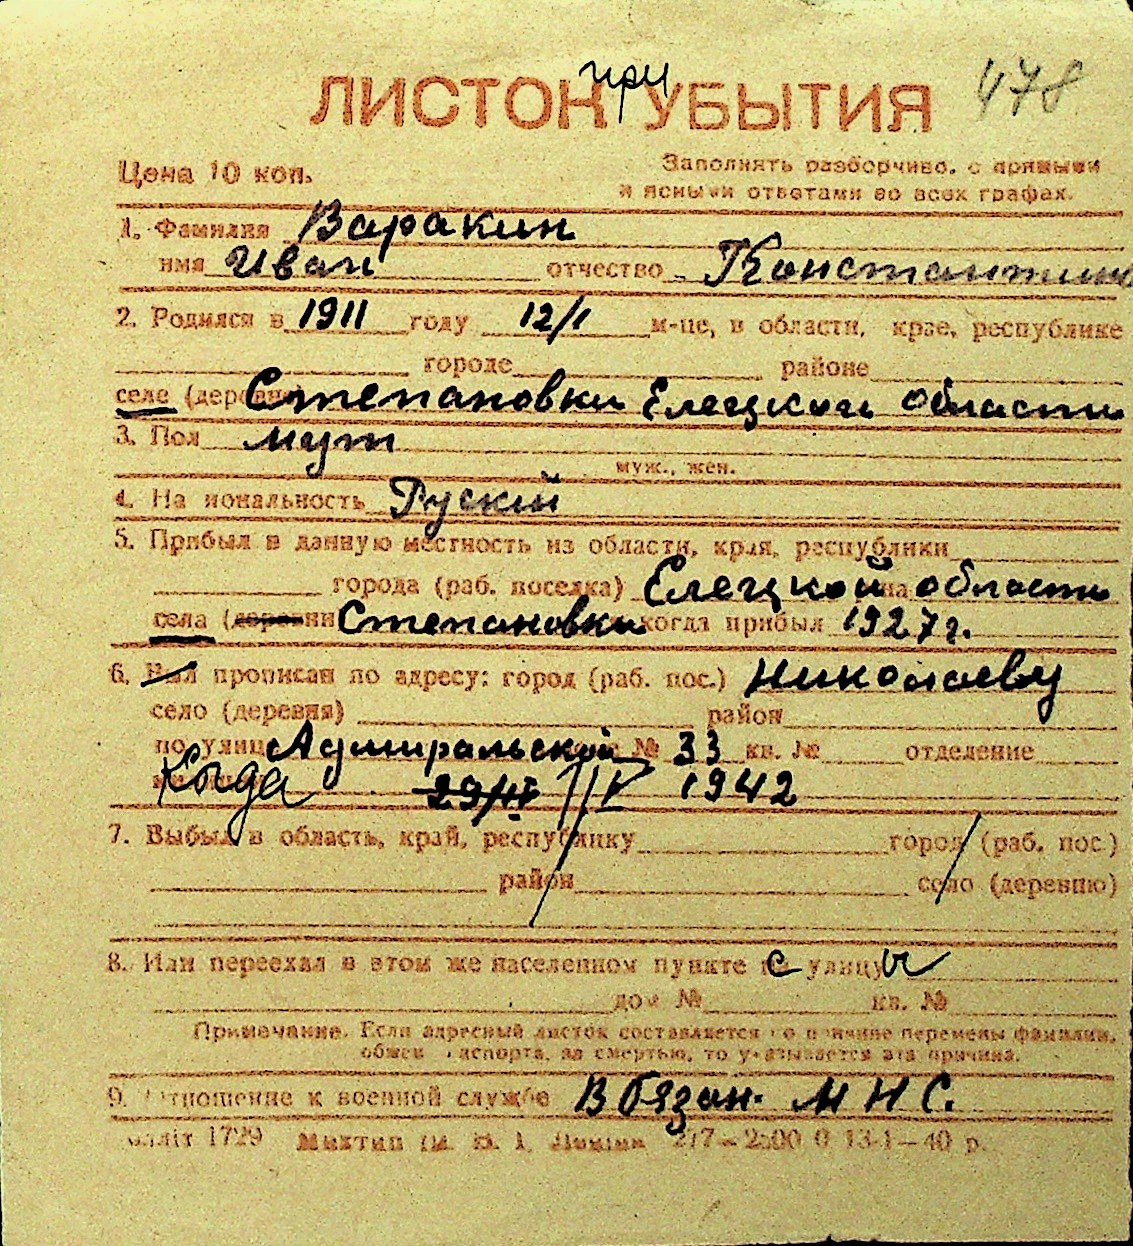 при 478
ЛИСТОК УБЫТИЯ
Цена 10 коп.
Заполнять разборчиво, с прямыми
и ясными ответами во всех графах.
1. Фамилия Варакин
имя Иван отчество Константинов
2. Родился в 1911 году 12/I м-це, в области, крае, республике
городе районе
селе (деревне) Степановки Елецкой области
3. Пол муж
муж., жен.
4. Национальность Руский
5. Прибыл в данную местность из области, края, республики
города (раб. поселка) Елецкой области
села (деревни Степановки когда прибыл 1927 г.
6. Был прописан по адресу: город (раб. пос.) Николаеву
село (деревня) район
по улице Адмиральской № 33 кв. № отделение
Когда 29/III 1/IV 1942
7. Выбыл в область, край, республику город (раб. пос.)
район село (деревню)
8. Или переехал в этом же населенном пункте с улицы
дом № кв. №
Примечание. Если адресный листок составляется по причине перемены фамилии,
обмен паспорта, за смертью, то указывается эта причина.
9. Отношение к военной службе В обязан. М Н С.
1729 277–2500 0 13-1–40 р.